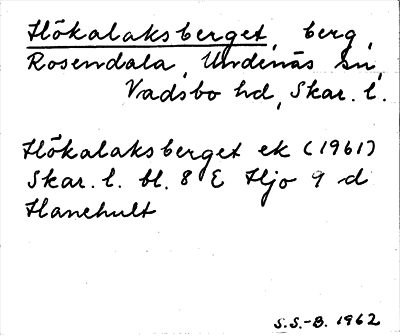 Hökalaksberget, berg,
Rosendala, Undenäs sn,
Vadsbo hd, Skar. l.
Hökalaksberget ek (1961)
Skar. l. bl. 8 E Hjo 9 d
Hanehult
S.S.-B. 1962